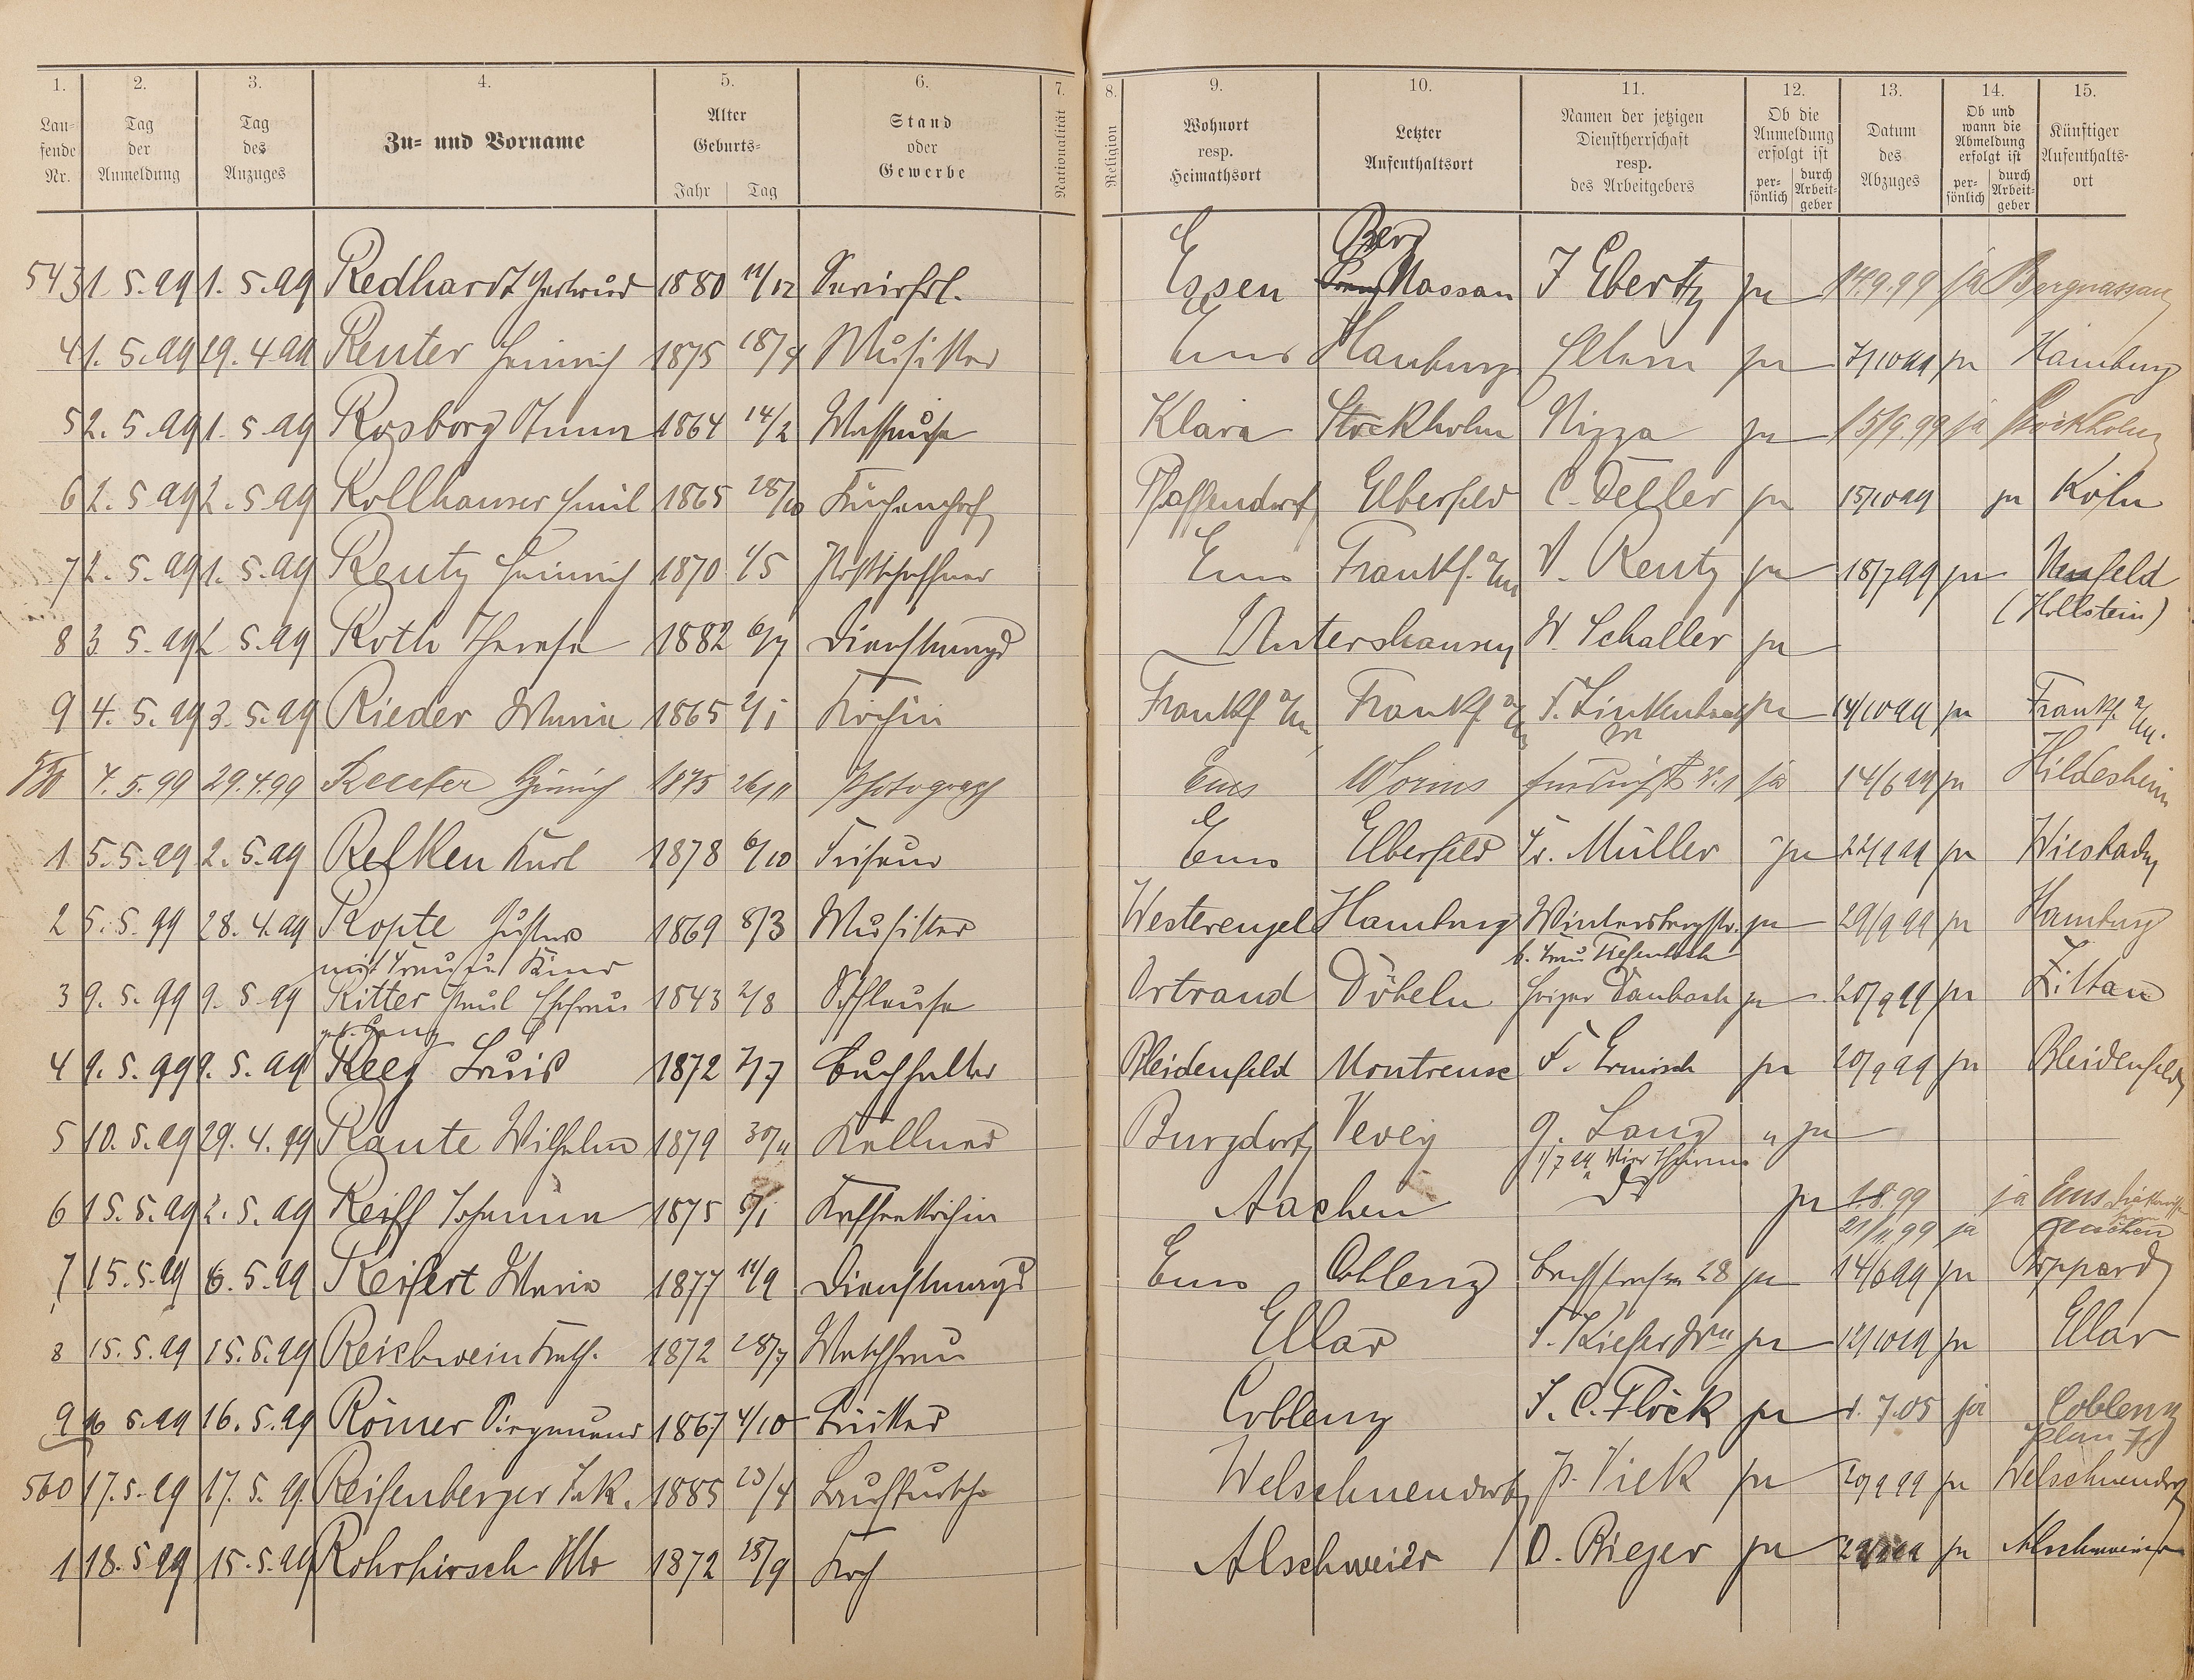 1. 2. 3. 4. 5. 6. 7. 8. 9. 10. 11. 12. 13. 14. 15.
Lau-
fende
Nr.
Tag
der
Anmeldung
Tag
des
Anzuges
Zu- und Vorname
Alter
Geburts-
Jahr Tag
Stand
oder
Gewerbe
Nationalität
Religion
Wohnort
resp.
Heimathsort
Letzter
Aufenthaltsort
Namen der jetzigen
Dienstherrschaft
resp.
des Arbeitgebers
Ob die
Anmeldung
erfolgt ist
per-
sönlich
durch
Arbeit-
geber
Datum
des
Abzuges
Ob und
wann die
Abmeldung
erfolgt ist
per-
sönlich
durch
Arbeit-
geber
Künftiger
Aufenthalts-
ort
Berg
543 1. 5. 99 1. 5. 99 Redhardt Gertrud 1880 11/12 Servirfrl. Essen Nassau J Ebertz ja 14.9.99 ja Bergnassau
4 1. 5. 99 29. 4. 99 Reuter Heinrich 1875 18/4 Musiker Ems Hamburg Eltern ja 7/10 99 ja Hamburg
5 2. 5. 99 1. 5. 99 Rosborg Anna 1864 14/2 Masseuse Klara Stockholm Nizza ja 15/9.99 ja Stockholm
6 2. 5. 99 2. 5. 99 Kollhauser Emil 1865 28/10 Küchenchef Pfaffendorf Elberfeld ja 15/10 99 ja Köln
7 2. 5. 99 1. 5. 99 Reutz Heinrich 1870 1/5 Postschaffner Ems Frankf. a/m V. Reutz ja 18/7 99 ja Neufeld
(Hollstein)
8 3. 5. 99 2. 5. 99 Roth Therese 1882 6/7 Dienstmagd Untershausen W. Schaller ja
9 4. 5. 99 3. 5. 99 Rieder Maria 1865 2/1 Köchin Frankf a/m Frankf. a/m ja 14/10 99 ja Frankf. a/m.
550 4. 5. 99 29.4.99 Reuter Heinrich 1875 26/11 Photograph Ems Worms ja 14/6 99 ja Hildesheim
1 5. 5. 99 2. 5. 99 Refken Karl 1878 6/10 Friseur Ems Elberfeld Fr. Müller ja 22/9 99 ja Wiesbaden
2 5. 5. 99 28. 4. 99 Kopte Gustav 1869 8/3 Musiker Westerengel Hamburg Wintersbergstr. ja 29/9 99 ja Hamburg
mit Frau u. Kind b. Frau Tiefenbach
3 9. 5. 99 9. 5. 99 Ritter Paul Ehefrau 1843 2/8 Ortrand Döbeln Daubach ja 20/9 99 ja Zittau
geb.
4 9. 5. 99 9. 5. 99 Reeg Louis 1872 7/7 Buchhalter Bleidenfeld Montreux F. Ermisch ja 20/9 99 ja Bleidenfeld
5 10. 5. 99 29. 4. 99 Raute Wilhelm 1879 30/11 Kellner Burgdorf Vevey G. Lang ja
1/7 99 Vier Thürme
6 15. 5. 99 2. 5. 99 Reiff Johanna 1875 5/1 Kaffeeköchin Aachen do ja 1.8.99 ja Ems
21/11.99 ja Aachen
7 15. 5. 99 6. 5. 99 Reifert Maria 1877 11/9 Dienstmagd Ems Coblenz Bachstrasse 28 ja 14/6 99 ja Boppard
8 15. 5. 99 15. 5. 99 Reichwein Kath. 1872 28/7 Waschfrau Ellar F. Kiefer Wwe ja 12/10 99 ja Ellar
9 16. 5. 99 16. 5. 99 Römer Siegmund 1867 4/10 Küster Coblenz J. C. Flöck ja 1. 7.05 ja Coblenz
560 17. 5. 99 17. 5. 99 Reifenberger Jak. 1885 23/4 Laufbursche Welschneudorf P. Viek ja 20/9 99 ja Welschneudorf
1 18. 5. 99 15. 5. 99 Rohrhirsch Alb 1872 28/9 Koch Alschweier O. Rieger ja ja Alschweier